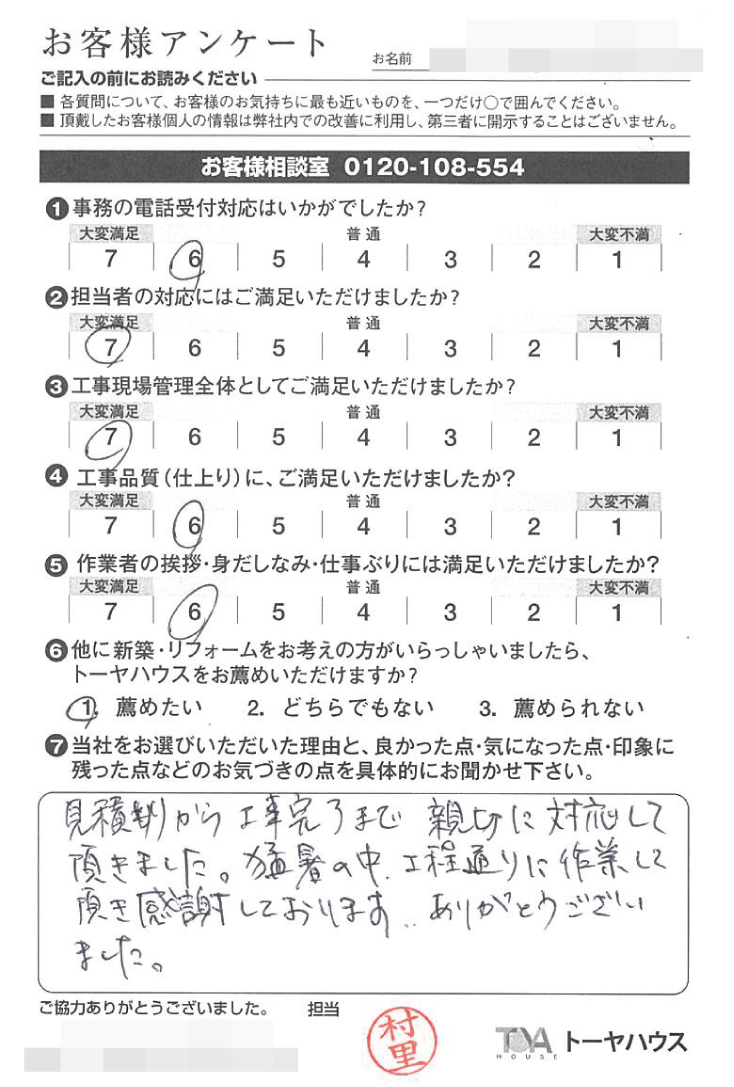 お客様アンケート
お名前
ご記入の前にお読みください
■ 各質問について、お客様のお気持ちに最も近いものを、一つだけ○で囲んでください。
■ 頂戴したお客様個人の情報は弊社内での改善に利用し、第三者に開示することはございません。
お客様相談室 0120-108-554
❶事務の電話受付対応はいかがでしたか?
大変満足 普通 大変不満
7 6 5 4 3 2 1
❷担当者の対応にはご満足いただけましたか?
大変満足 普通 大変不満
7 6 5 4 3 2 1
❸工事現場管理全体としてご満足いただけましたか?
大変満足 普通 大変不満
7 6 5 4 3 2 1
❹工事品質(仕上り)に、ご満足いただけましたか?
大変満足 普通 大変不満
7 6 5 4 3 2 1
❺作業者の挨拶・身だしなみ・仕事ぶりには満足いただけましたか?
大変満足 普通 大変不満
7 6 5 4 3 2 1
❻他に新築・リフォームをお考えの方がいらっしゃいましたら、
トーヤハウスをお薦めいただけますか?
1. 薦めたい 2. どちらでもない 3. 薦められない
❼当社をお選びいただいた理由と、良かった点・気になった点・印象に
残った点などのお気づきの点を具体的にお聞かせ下さい。
から工事完了まで 親切に対応して
頂きました。猛暑の中、工程通りに作業して
頂き感謝しております。ありがとうござい
ました。
ご協力ありがとうございました。 担当
村里
TOYA HOUSE トーヤハウス